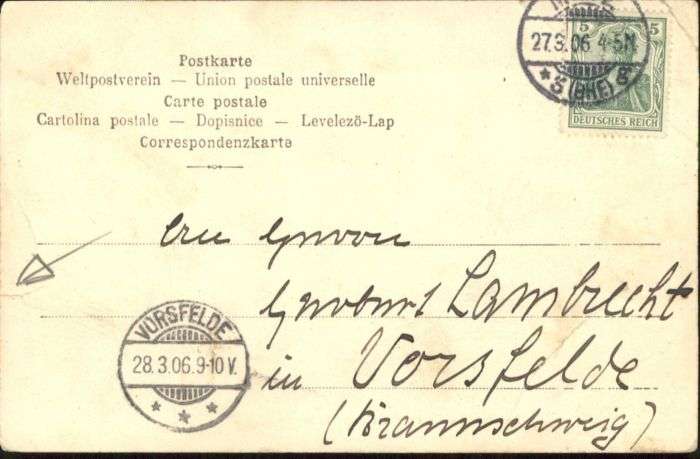 Postkarte
Weltpostverein — Union postale universelle
Carte postale
Cartolina postale — Dopisnice — Levelező-Lap
Correspondenzkarte
27.3.06 4-5N.
* 5 (BHF) 8
5 5
DEUTSCHES REICH
Herrn
Lambrecht
in Vorsfelde
(Braunschweig)
VORSFELDE
28.3.06.9-10V.